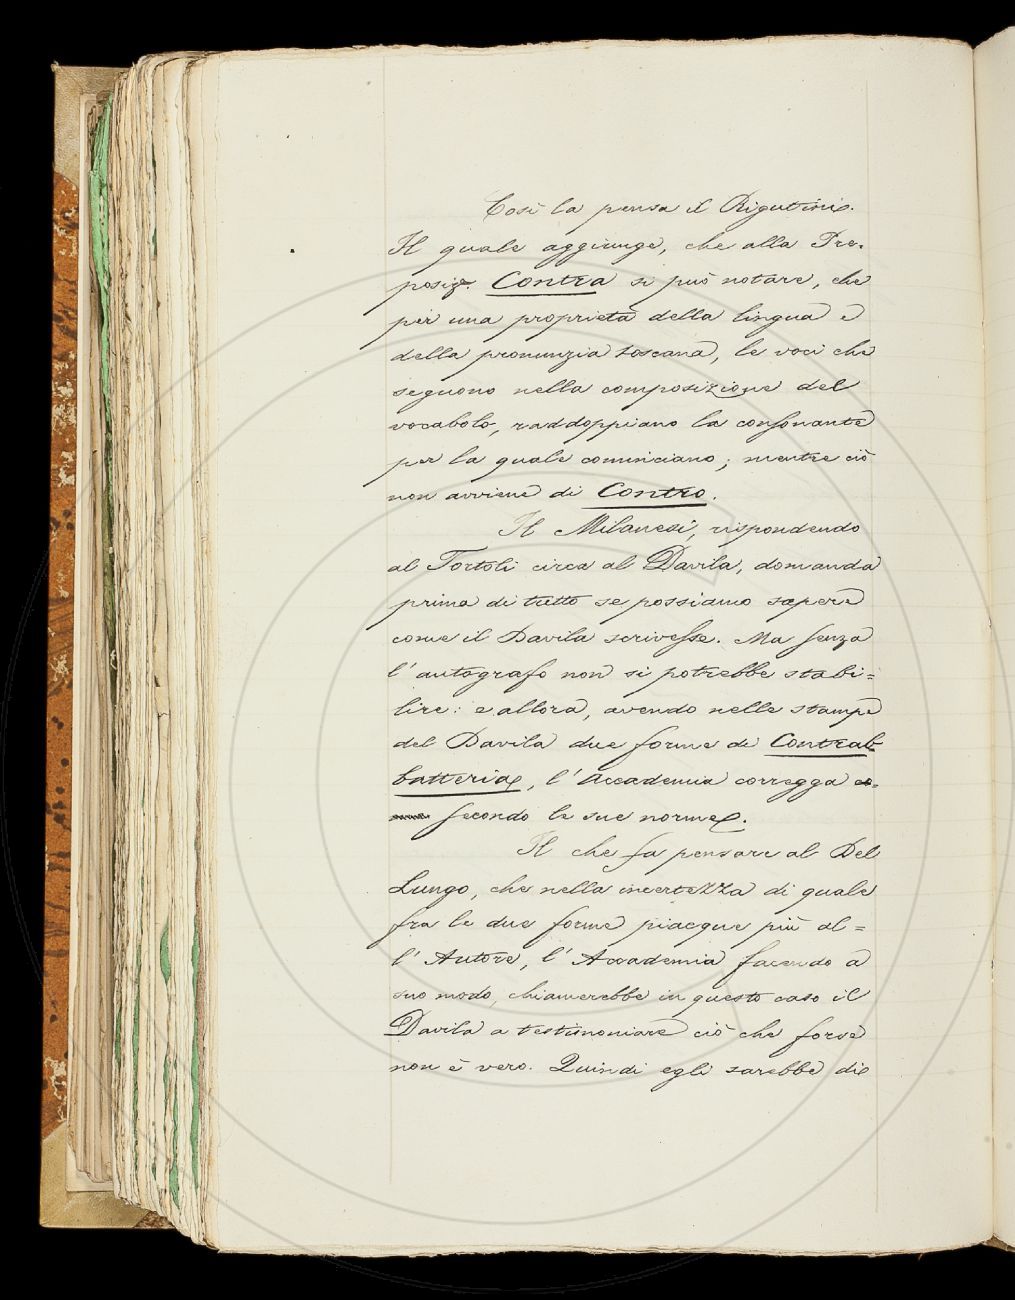 Così la pensa il Rigutini.
Il quale aggiunge, che alla Pre-
posiz. Contra si può notare, che
per una proprietà della lingua e
della pronunzia toscana, le voci che
seguono nella composizione del
vocabolo, raddoppiano la consonante
per la quale cominciano; mentre ciò
non avviene di Contro.
Il Milanesi, rispondendo
al Tortoli circa al Davila, domanda
prima di tutto se possiamo sapere
come il Davila scrivesse. Ma senza
l'autografo non si potrebbe stabi=
lire: e allora, avendo nelle stampe
del Davila due forme di Contrab-
batteria, l'Accademia corregga
secondo le sue norme.
Il che fa pensare al Del
Lungo, che nella incertezza di quale
fra le due forme piacque più al=
l'Autore, l'Accademia facendo a
suo modo, chiamerebbe in questo caso il
Davila a testimoniare ciò che forse
non è vero. Quindi egli sarebbe di